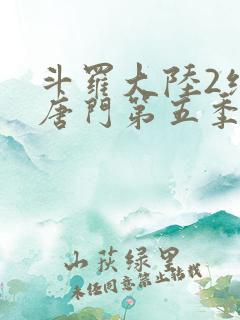 斗羅大陸2
唐門第五季
山荻緑里
未经同意禁止转载